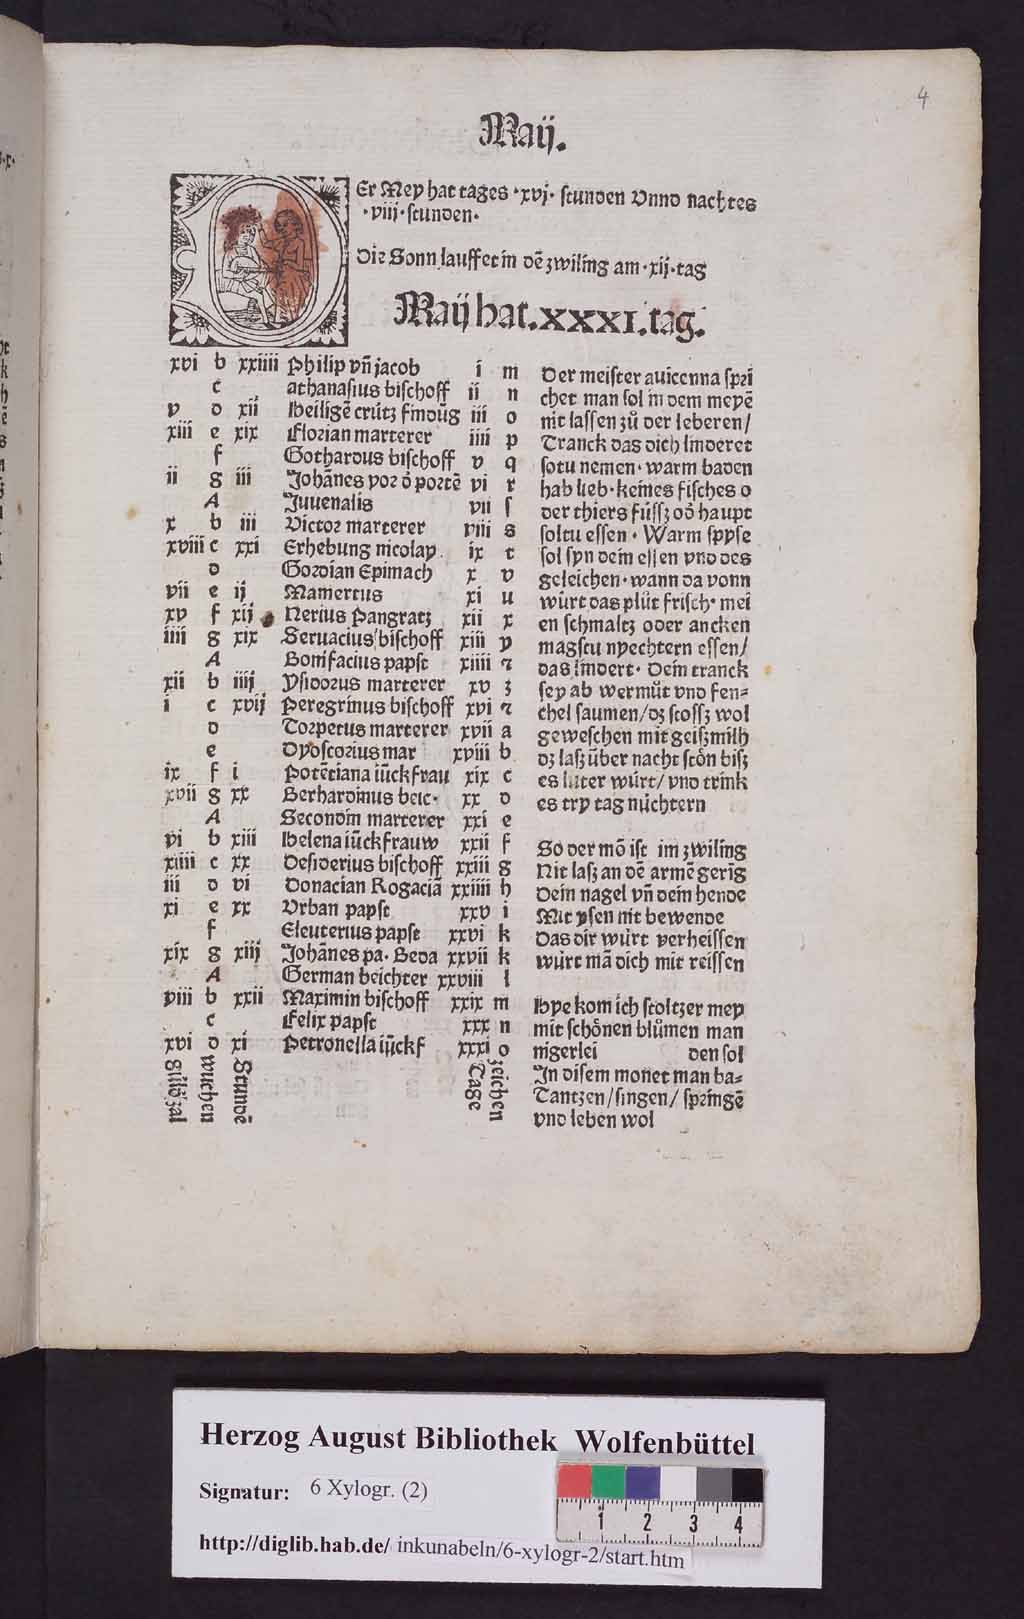 4
Maij.
Er Mey hat tages ·xvj· stunden Vnnd nachtes
·viij·stunden·
Die Sonn lauffet in dē zwiling am·xij·tag
Maij hat.XXXI.tag.
xvi b xxiiii Philip vn̄ jacob i m
c athanasius bischoff ii n
v d xii Heiligē crütz findūg iii o
xiii e xix Florian marterer iiii p
f Gothardus bischoff v q
ii g iii Johānes vor d̕ portē vi r
A Juuenalis vii ſ
x b iii Victor marterer viii s
xviii c xxi Erhebung nicolay ix t
d Gordian Epimach x v
vii e ij Mamertus xi u
xv f xij Nerius Pangratz xii x
iiii g xix Seruacius bischoff xiii y
A Bonifacius papst xiiii ꝛ
xii b iiij Ysidorus marterer xv z
i c xvij Peregrinus bischoff xvi ꝛ
d Torpetus marterer xvii a
e Dyoscorius mar xviii b
ix f i Potētiana iūckfrau xix c
xvii g xx Berhardinus beic· xx d
A Secondin marterer xxi e
vi b xiii Helena iūckfrauw xxii f
xiiii c xx Desiderius bischoff xxiii g
iii d vi Donacian Rogaciā xxiiii h
xi e xx Vrban papst xxv i
f Eleuterius papst xxvi k
xix g xiij Johānes pa· Beda xxvii k
A German beichter xxviii l
viii b xxii Maximin bischoff xxix m
c Felix papst xxx n
xvi d xi Petronella iūckf xxxi o
wuchen
Stundē
Tage
zeichen
Der meister auicenna spri
chet man sol in dem meyē
nit lassen zů der leberen/
Tranck das dich linderet
sotu nemen· warm baden
hab lieb·keines fisches o
der thiers füssz od̕ haupt
soltu essen · Warm spyse
sol syn dein essen vnd des
geleichen·wann da vonn
würt das plůt frisch· mei
en schmaltz oder ancken
magstu nyechtern essen/
das lindert· Dein tranck
sey ab wermůt vnd fen=
chel saumen/dz stossz wol
geweschen mit geiszmilh
dz lasz über nacht stön bisz
es luter würt/ vnd trink
es try tag nüchtern
So der mō ist im zwiling
Nit lasz an dē armē gerīg
Dein nagel vn̄ dein hende
Mit ysen nit bewende
Das dir würt verheissen
würt mā dich mit reissen
Hye kom ich stoltzer mey
mit schönen blůmen man
nigerlei den sol
In disem monet man ba=
Tantzen/singen/ springē
vnd leben wol
Herzog August Bibliothek Wolfenbüttel
Signatur: 6 Xylogr. (2)
http://diglib.hab.de/ inkunabeln/6-xylogr-2/start.htm
1 2 3 4